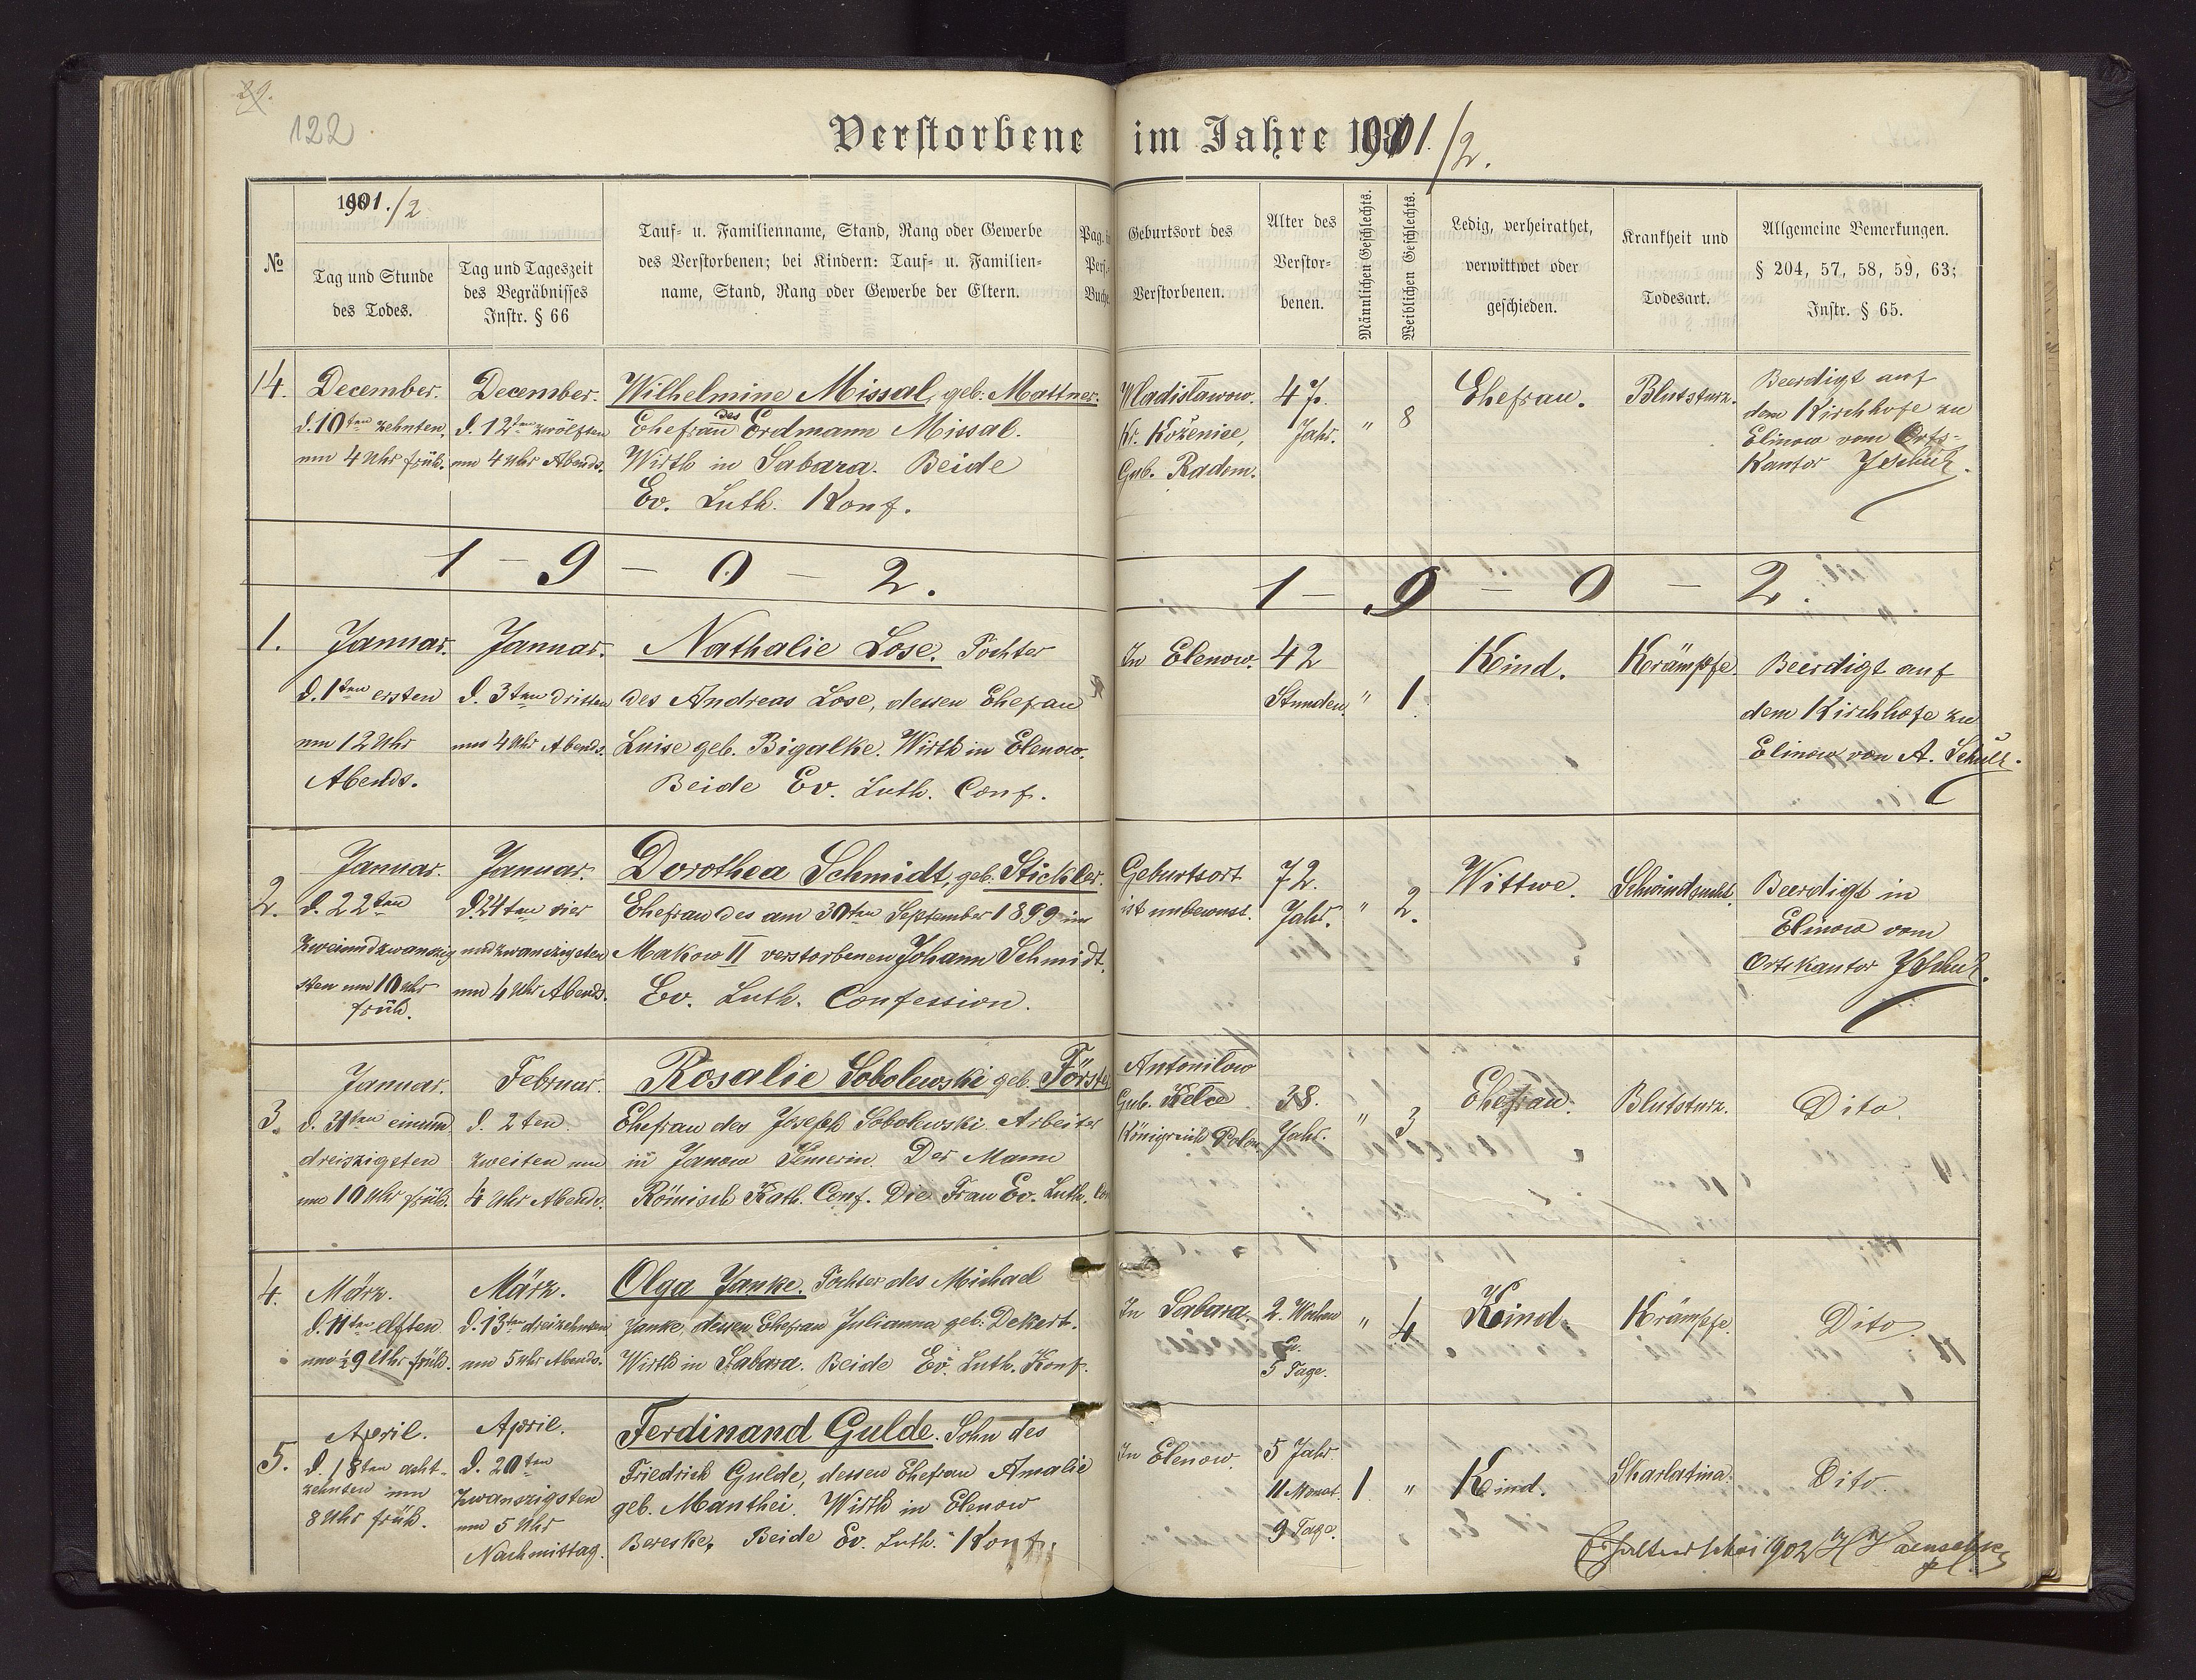 29.
122
Verstorbene im Jahre 1901/2.
№
1901./2
Tag und Stunde
des Todes.
Tag und Tageszeit
des Begräbnisses
Instr. § 66
Tauf- u. Familienname, Stand, Rang oder Gewerbe
des Verstorbenen; bei Kindern: Tauf- u. Familien-
name, Stand, Rang oder Gewerbe der Eltern.
Pag. i.
Pers.
Buche
Geburtsort des
Verstorbenen.
Alter des
Verstor-
benen.
Männlichen Geschlechts.
Weiblichen Geschlechts.
Ledig, verheirathet,
verwittwet oder
geschieden.
Krankheit und
Todesart.
Allgemeine Bemerkungen.
§ 204, 57, 58, 59, 63;
Instr. § 65.
14.
December.
d. 10ten zehnten,
um 4 Uhr früh.
December.
d. 12ten zwölften
um 4 Uhr Abends.
Wilhelmine Missal, geb: Mattner.
Ehefrau des Erdmann Missal.
Wirth in Sabara. Beide
Ev. Luth. Konf.
Wladislawow.
Kr. Koženice,
Gub. Radom.
47.
Jahr.
"
8
Ehefrau.
Blutsturz.
Beerdigt auf
dem Kirchhofe zu
Elinow vom Orts-
Kantor J Schulz.
1 - 9 - 0 - 2.
1 - 9 - 0 - 2.
1.
Januar.
d. 1ten ersten
um 12 Uhr
Abends.
Januar.
d. 3ten dritten
um 4 Uhr Abends.
Nathalie Lose. Tochter
des Andreas Lose, dessen Ehefrau
Luise geb. Bigalke. Wirth in Elenow.
Beide Ev. Luth. Conf.
In Elenow.
42
Stunden.
"
1
Kind.
Krämpfe.
Beerdigt auf
dem Kirchhofe zu
Elinow von A. Schulz.
2.
Januar.
d. 22ten
zweiundzwanzig
sten um 10 Uhr
früh.
Januar.
d. 24ten vier
und zwanzigsten
um 4 Uhr Abends.
Dorothea Schmidt, geb. Stickler.
Ehefrau des am 30ten September 1899 in
Makow II verstorbenen Johann Schmidt.
Ev. Luth. Confession.
Geburtsort
ist unbewusst.
72.
Jahr.
"
2.
Wittwe.
Schwindsucht.
Beerdigt in
Elinow vom
Ortskantor J Schulz.
3.
Januar.
d. 31ten einund
dreiszigsten
um 10 Uhr früh.
Februar.
d. 2ten.
zweiten um
4 Uhr Abends.
Rosalie Sobolewski geb. Förster
Ehefrau des Joseph Sobolewski. Arbeiter
in Janow Semerin. Der Mann
Römisch Kath. Conf. Die Frau Ev. Luth. Con
Antonilow
Gub. Kelce
Königreich Polen
38.
Jahr.
"
3
Ehefrau.
Blutsturz.
Dito
4.
März.
d. 11ten elften
um ½9 Uhr früh.
März.
d. 13ten dreizehnten
um 5 Uhr Abends.
Olga Janke. Tochter des Michael
Janke, dessen Ehefrau Julianna geb: Dekert.
Wirth in Sabara. Beide Ev. Luth. Konf.
In Sabara.
2. Wochen
u.
5 Tage.
"
4
Kind.
Krämpfe.
Dito
5.
April.
d. 18ten acht-
zehnten um
8 Uhr früh.
April.
d. 20ten
Zwanzigsten
um 5 Uhr
Nachmittag.
Ferdinand Gulde. Sohn des
Friedrich Gulde, dessen Ehefrau Amalie
geb. Manthei. Wirth in Elenow
Bereske, Beide Ev. Luth. Konf.
In Elenow.
5 Jahr.
11 Monat.
9 Tage.
1
"
Kind.
Skarlatina.
Dito.
Erhalten 1902